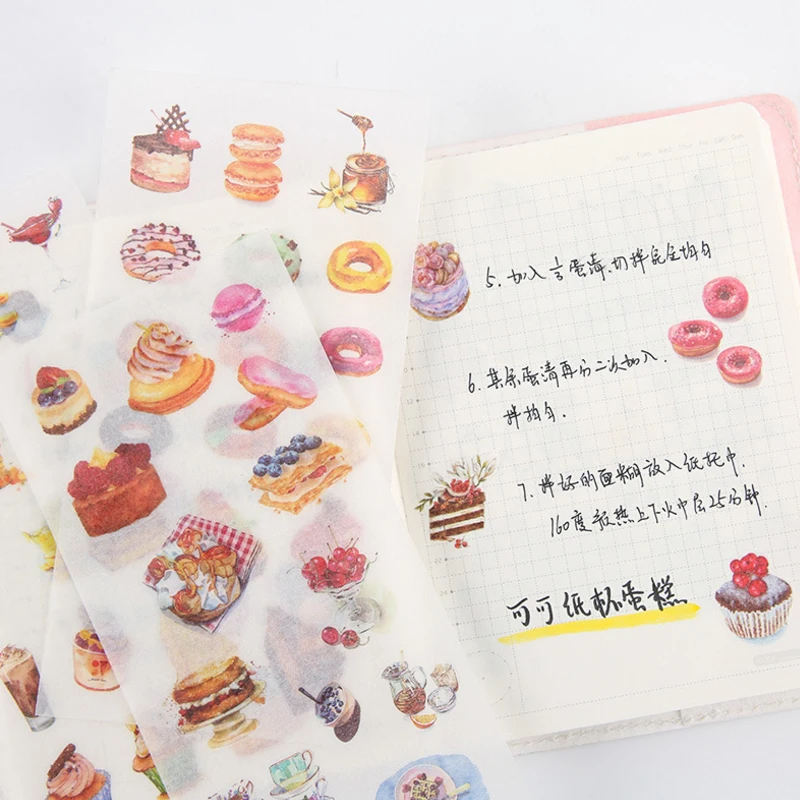 Mon Tue Wed Thu Fri Sat Sun
5. 加入⅓蛋清.切拌完全均匀
6. 其余蛋清再分二次加入.
拌均匀.
7. 拌好的面糊放入纸托中.
160度预热上下火中层25分钟.
可可纸杯蛋糕